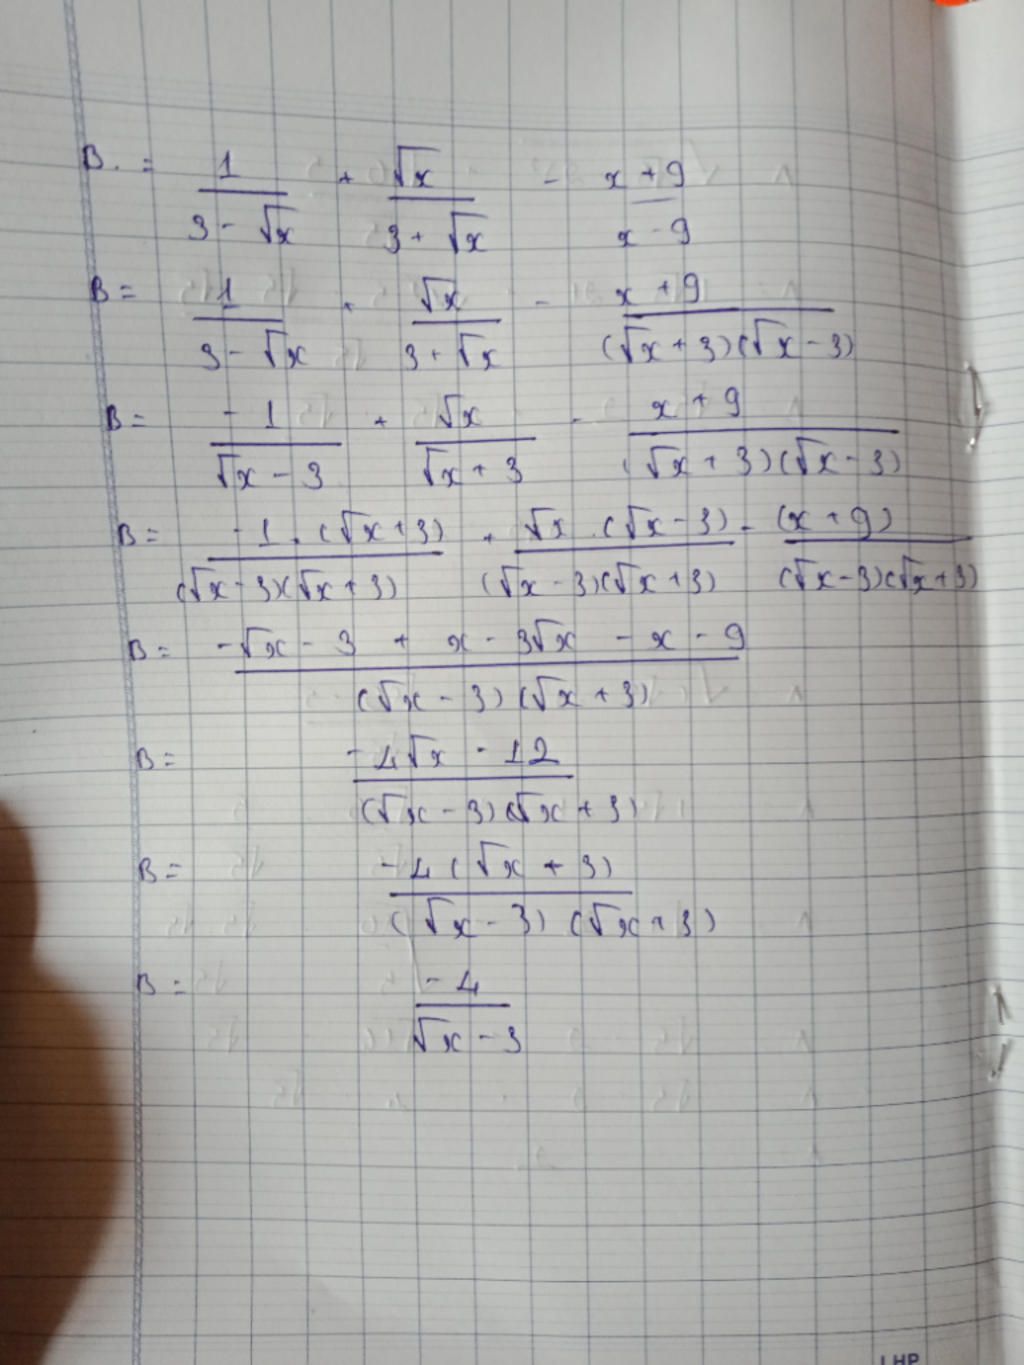 B. = 1/(3 - √x) + √x/(3 + √x) - (x + 9)/(x - 9)
B = 1/(3 - √x) + √x/(3 + √x) - (x + 9)/((√x + 3)(√x - 3))
B = -1/(√x - 3) + √x/(√x + 3) - (x + 9)/((√x + 3)(√x - 3))
B = -1.(√x + 3)/((√x - 3)(√x + 3)) + √x.(√x - 3)/((√x - 3)(√x + 3)) - (x + 9)/((√x - 3)(√x + 3))
B = (-√x - 3 + x - 3√x - x - 9)/((√x - 3)(√x + 3))
B = (-4√x - 12)/((√x - 3)(√x + 3))
B = -4(√x + 3)/((√x - 3)(√x + 3))
B = -4/(√x - 3)